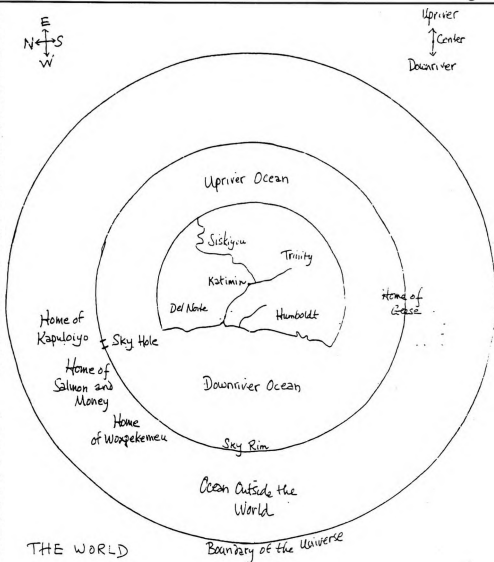 E
N S
W
Upriver
Center
Downriver
Upriver Ocean
Siskiyou
Trinity
Katimin
Del Norte
Humboldt
Home of
Geese
Home of
Kapuloiyo
Sky Hole
Home of
Salmon and
Money
Downriver Ocean
Home
of Woxpekemeu
Sky Rim
Ocean Outside the
World
THE WORLD
Boundary of the Universe